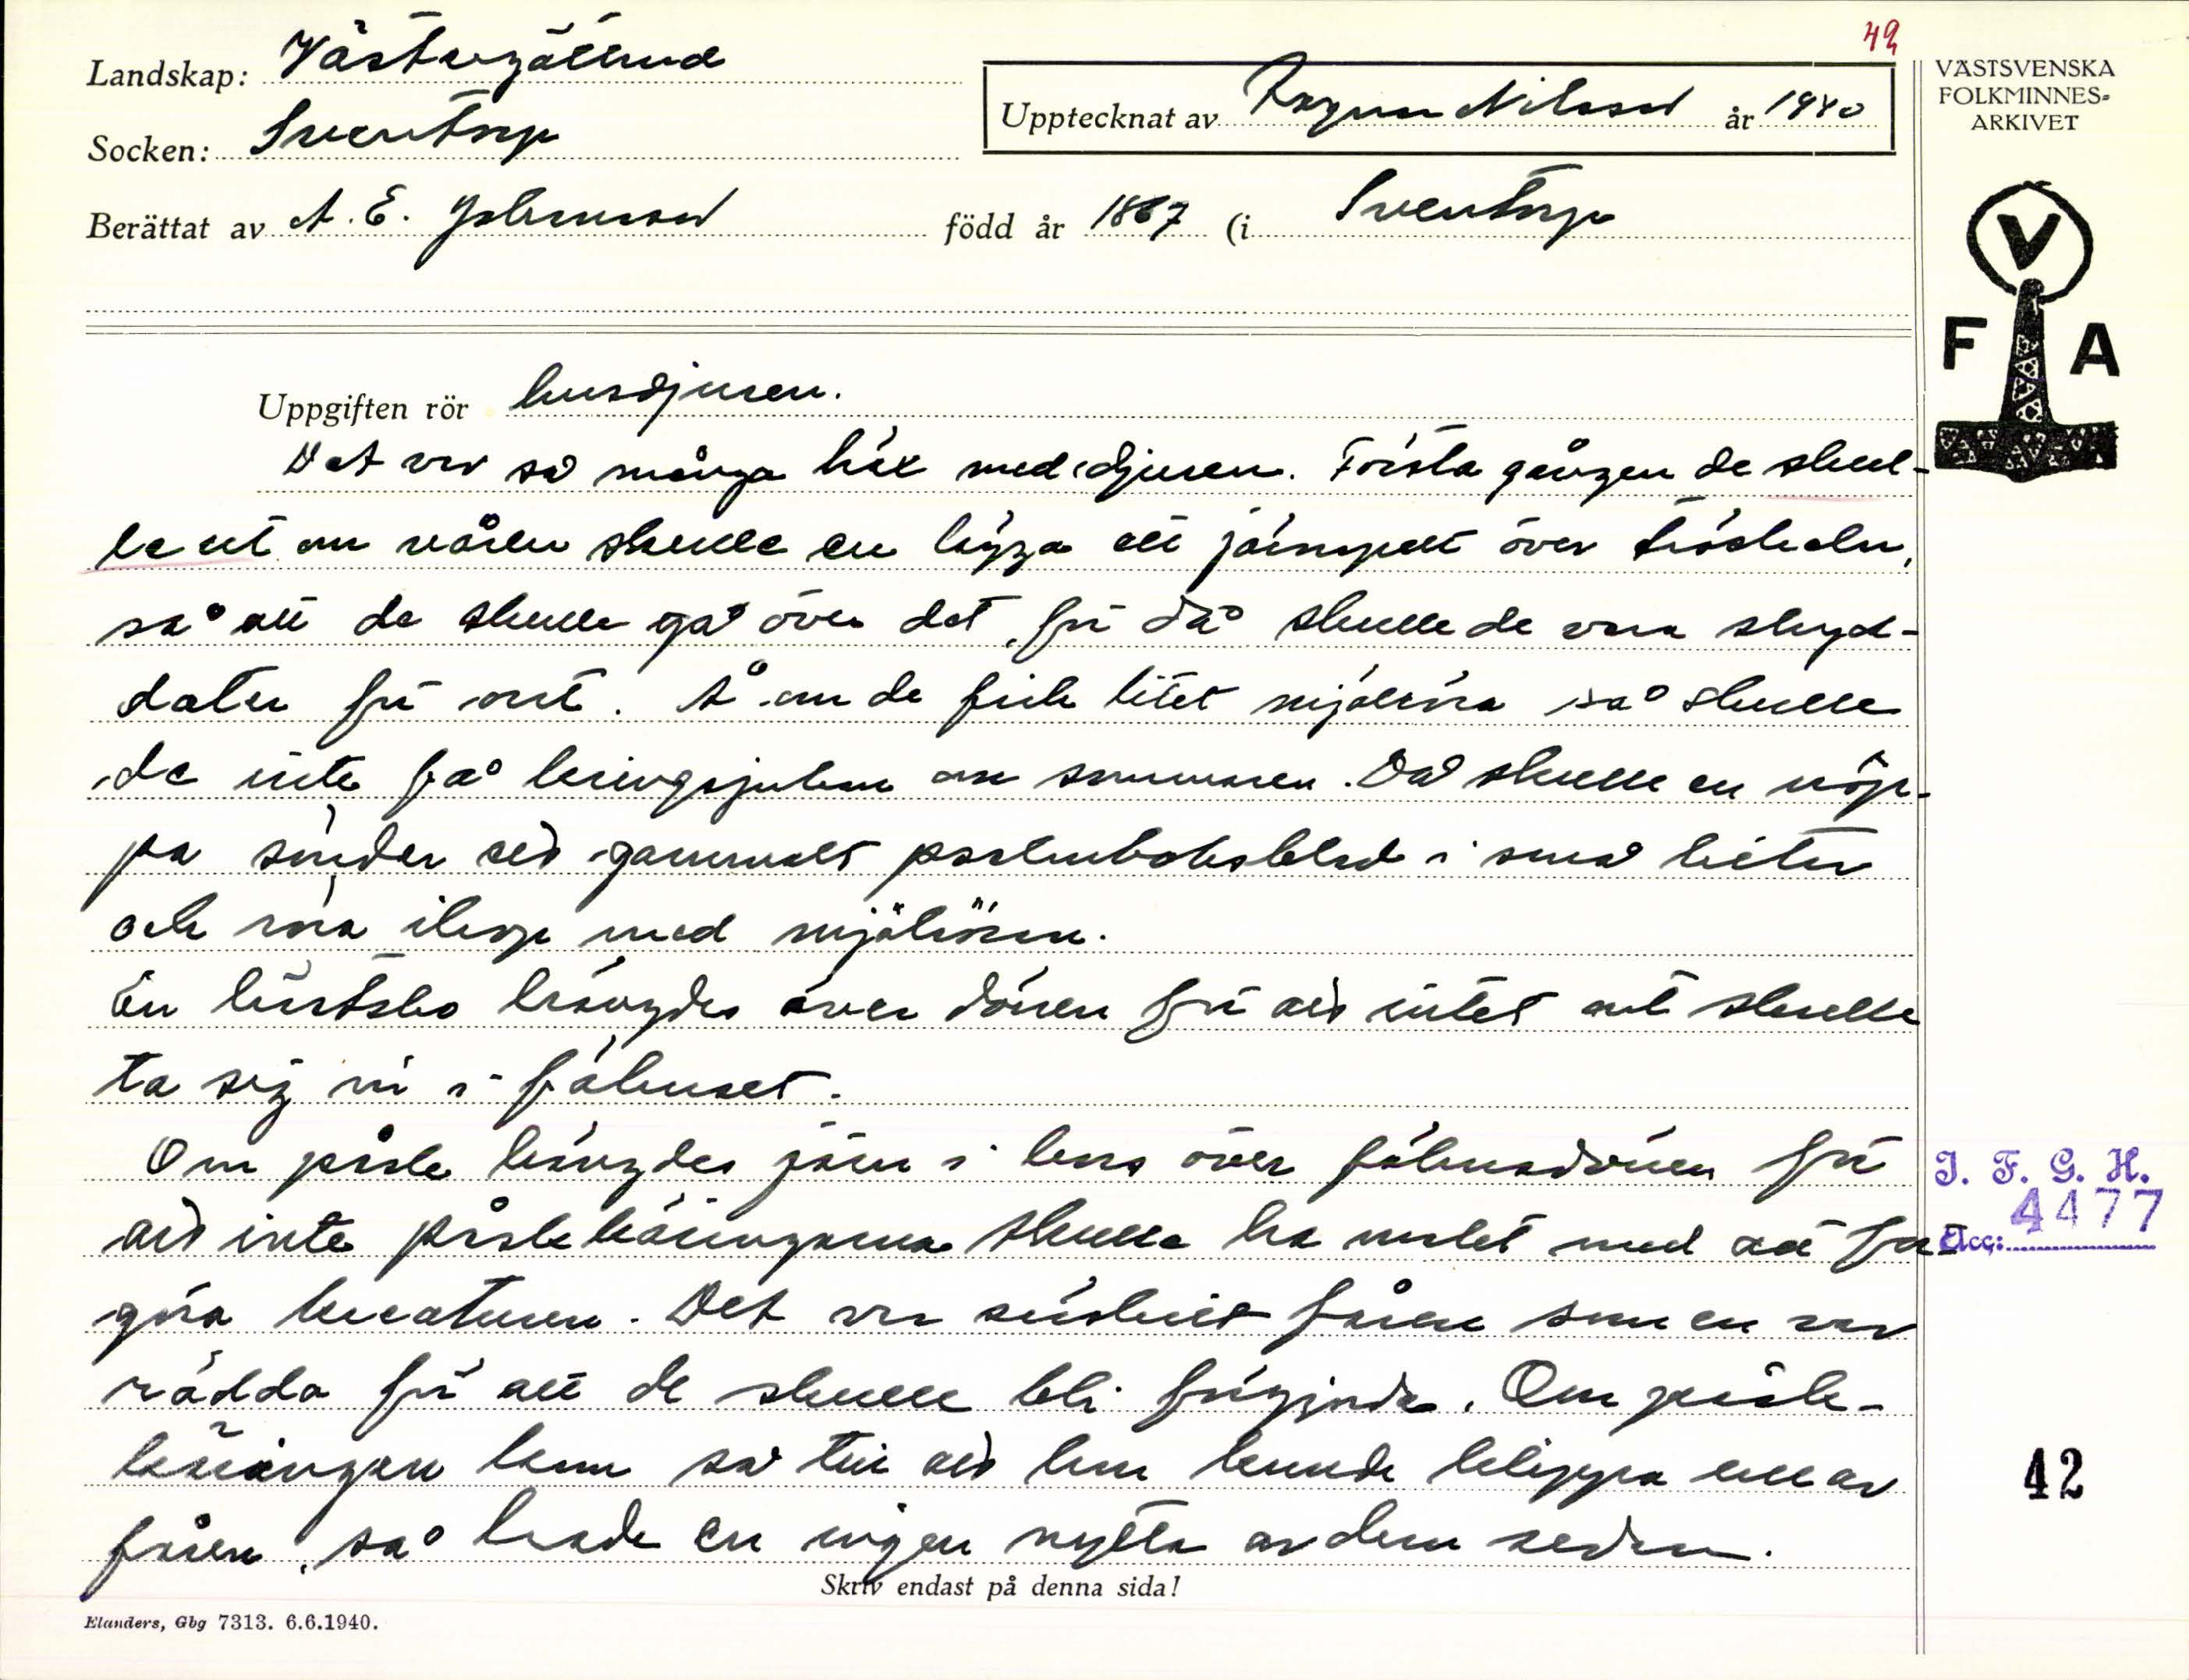 49
Landskap: Västergötland
Socken: Sventorp
Berättat av A. E. Johansson född år 1867 (i Sventorp
Upptecknat av Ragnar Nilsson år 1940
VÄSTSVENSKA
FOLKMINNES-
ARKIVET
V
F A
Uppgiften rör husdjuren.
Det var så många häx med djuren. Första gången de skul-
le ut om våren skulle en lägga ett järnspett över tröskeln,
så att de skulle gå över det, för då skulle de vara skyd-
dater för ont. Å om de fick litet mjölröra så skulle
de inte få om sommaren. Då skulle en
pa sönder ett gammalt psalmboksblad i små bitar
och röra ihop med mjölröran.
En hästsko hängdes över dörren för att intet ont skulle
ta sig in i fähuset.
Om påsk hängdes järn i kors över fähusdörren för
att inte påskkäringarna skulle ha makt med att för-
göra kreaturen. Det var särskilt fåren som en var
rädda för att de skulle bli förgjorda. Om påsk-
käringen kom så till att hon kunde klippa ull av
fåren, så hade en ingen nytta av dem sedan.
Skriv endast på denna sida!
Elanders, Gbg 7313. 6.6.1940.
I. F. G. H.
Acc: 4477
42